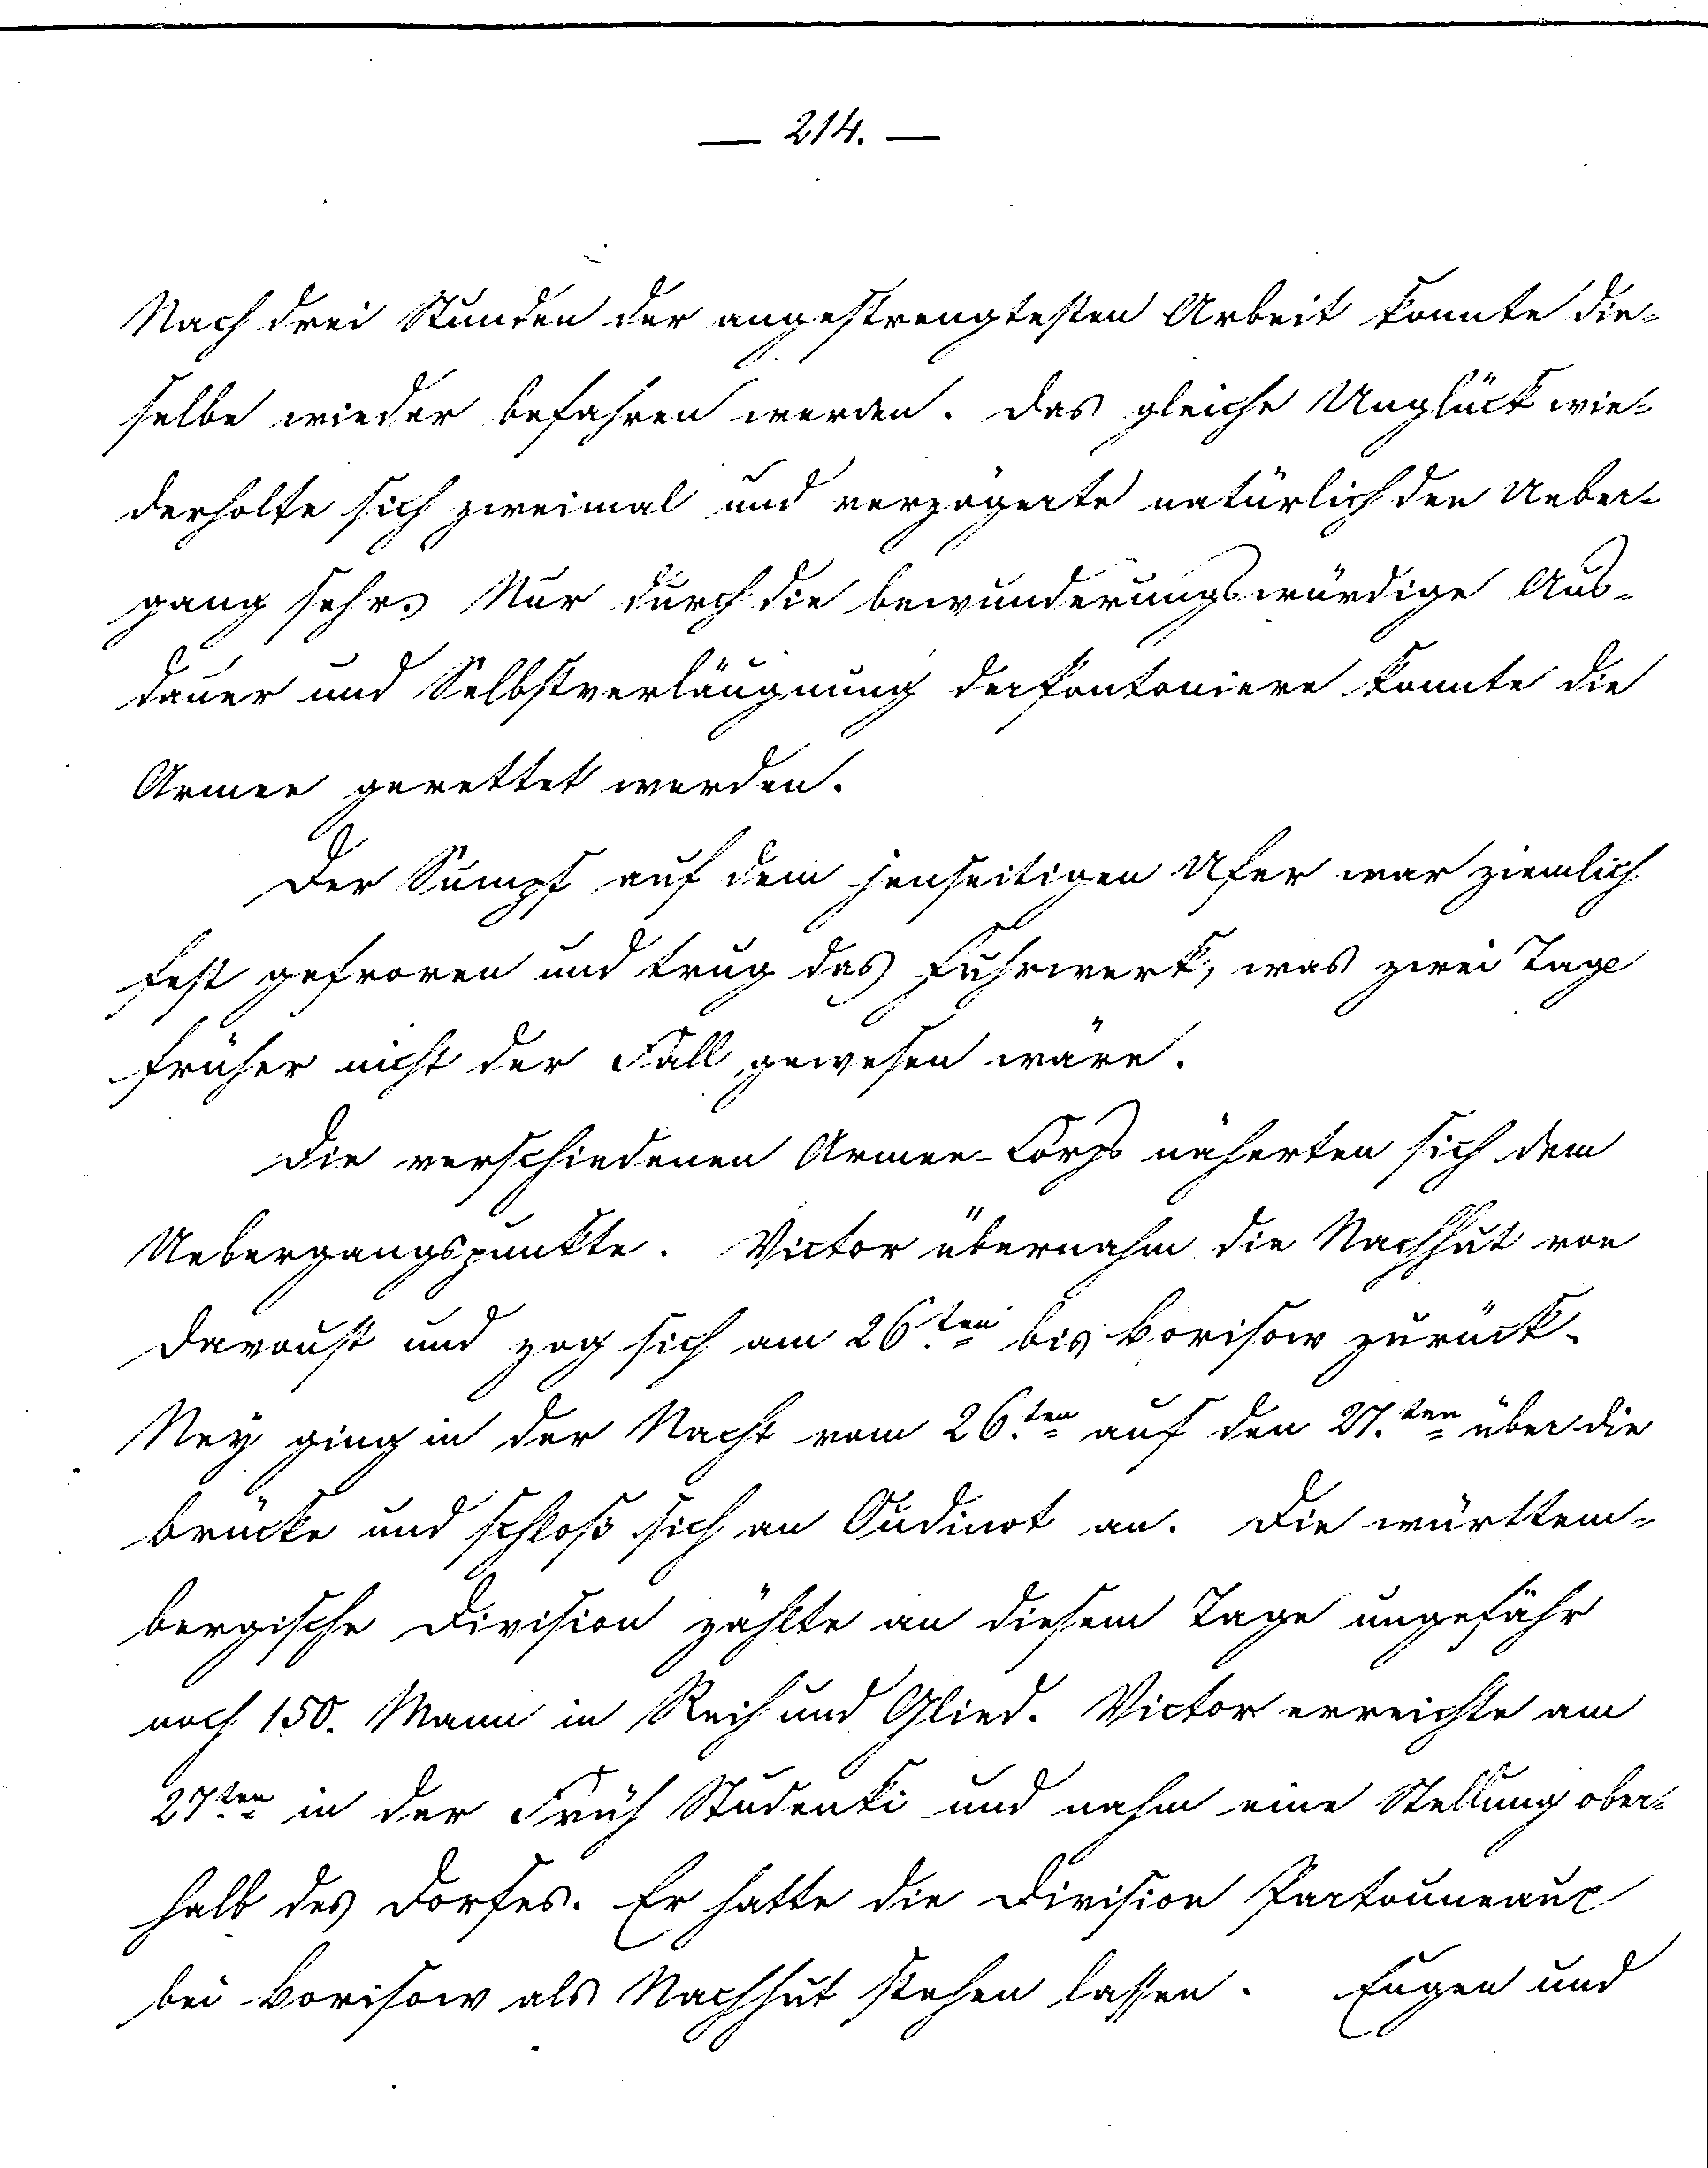 — 214. —
Nach drei Stunden der angestrengtesten Arbeit konnte die-
selbe wieder befahren werden. Das gleiche Unglück wie-
derholte sich zweimal und verzögerte natürlich den Ueber-
gang sehr. Nur durch die bewunderungswürdige Aus-
dauer und Selbstverläugnung der Pontoniere konnte die
Armee gerettet werden.
Der Sumpf auf dem jenseitigen Ufer war ziemlich
fest gefroren und trug das Fuhrwerk, was zwei Tage
früher nicht der Fall gewesen wäre.
Die verschiedenen Armee-Corps näherten sich dem
Uebergangspunkte. Victor übernahm die Nachhut von
Davoust und zog sich am 26.ten bis Borisow zurück.
Ney ging in der Nacht vom 26.ten auf den 27.ten über die
Brücke und schloß sich an Oudinot an. Die württem-
bergische Division zählte an diesem Tage ungefähr
noch 150. Mann in Reih und Glied. Victor erreichte am
27ten in der Früh Studenki und nahm eine Stellung ober-
halb des Dorfes. Er hatte die Division Partouneaux
bei Borisow als Nachhut stehen lassen. Eugen und